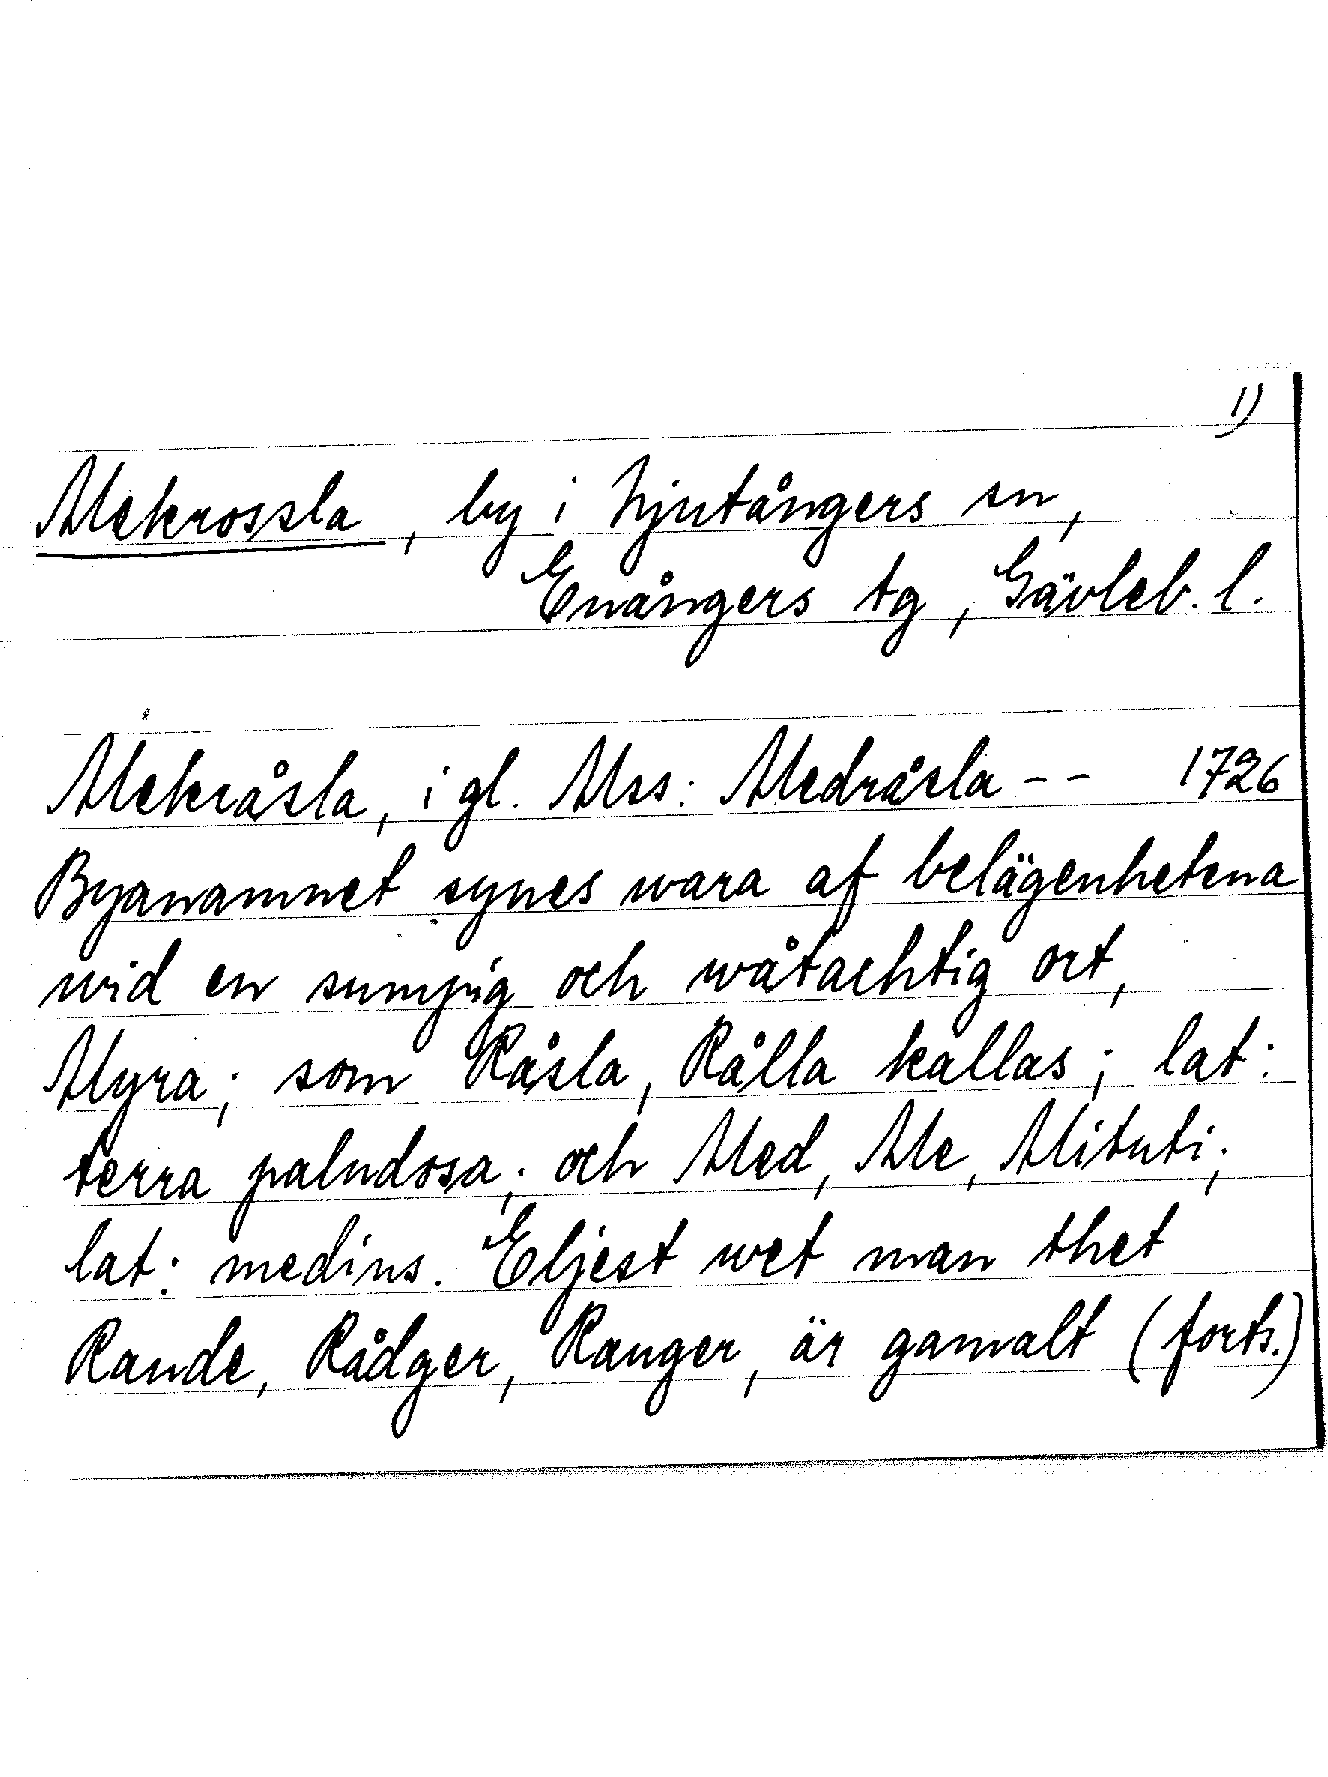 1)
Mekrossla, by i Njutångers sn,
Enångers tg, Gävleb. l.
Mekråsla, i gl. Mss: Medråsla -- 1726
Byanamnet synes wara af belägenhetena
wid en sumpig och wåtachtig ort,
Myra; som Råsla, Rålla kallas; lat:
terra paludosa; och Med, Me, Mituti;
lat: medius. Eljest wet man thet
Rande, Rådger, Ranger, är gamalt (forts.)